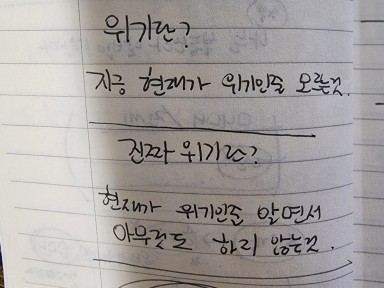 위기란?
지금 현재가 위기인줄 모르는것.
진짜 위기란?
현재가 위기인줄 알면서
아무것도 하지 않는것.